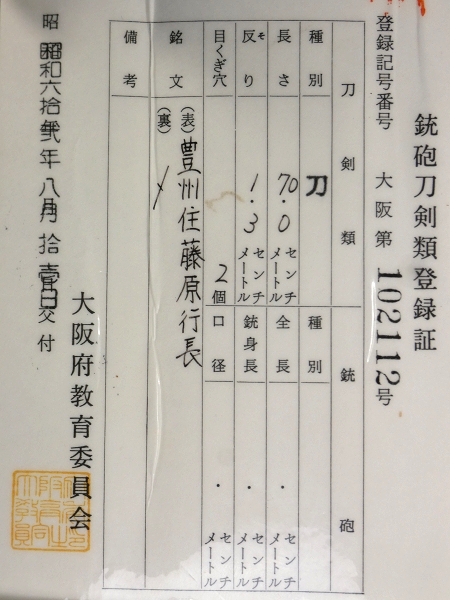 銃砲刀剣類登録証
登録記号番号 大阪第102112号
刀剣類 銃砲
種別 刀 種別
長さ 70.0 センチメートル 全長 ・ センチメートル
反り ソモ 1.3 センチメートル 銃身長 ・
目くぎ穴 2個 口径 ・ センチメートル
銘文 (表) 豊州住藤原行長
(裏)
備考
大阪府教育委員会
昭和六拾弐年八月拾壱日交付